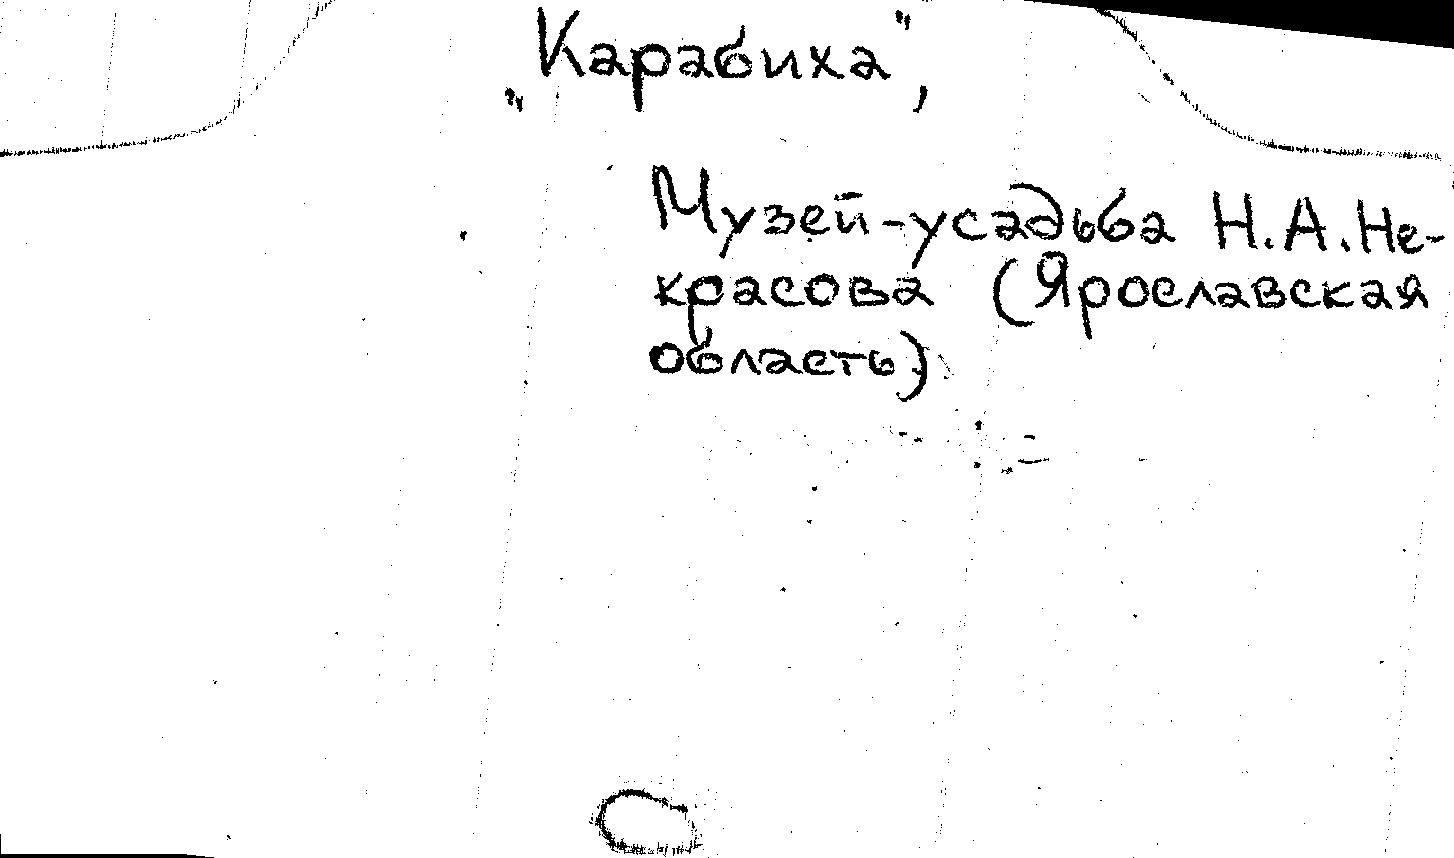 „Карабиха",
Музей-усадьба Н.А.Не-
красова (Ярославская
область)